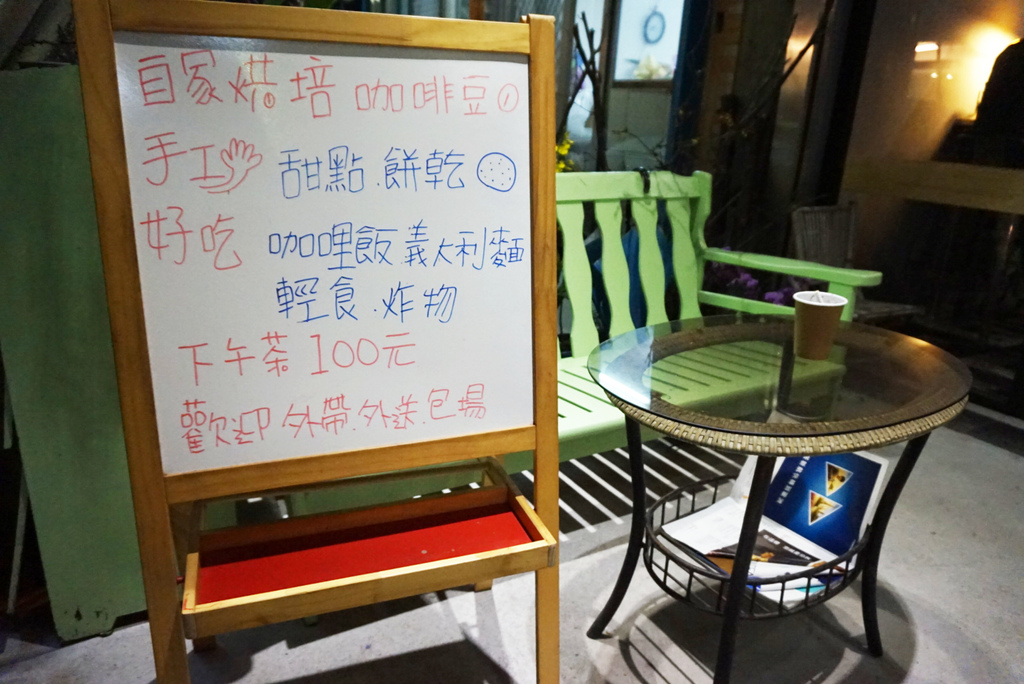 自家烘培 咖啡豆
手工 甜點.餅乾
好吃 咖哩飯 義大利麵
輕食.炸物
下午茶 100元
歡迎 外帶.外送.包場